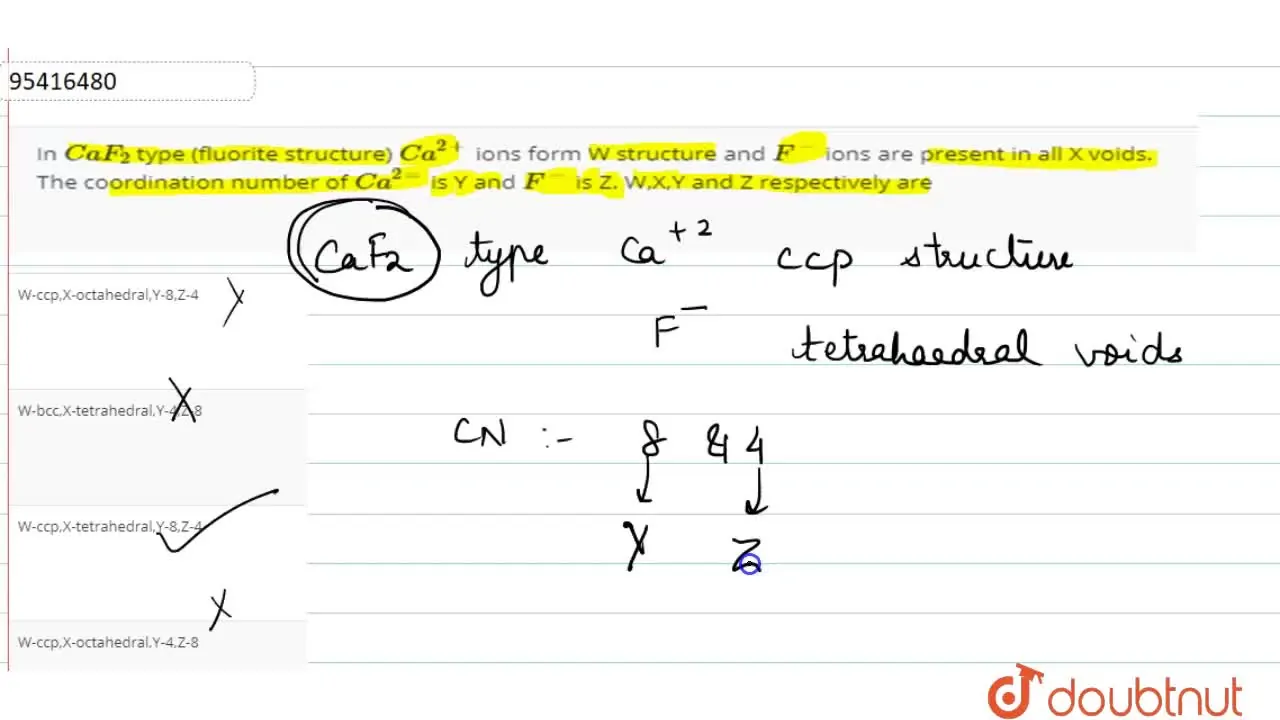 95416480
In CaF₂ type (fluorite structure) Ca²⁺ ions form W structure and F⁻ ions are present in all X voids.
The coordination number of Ca²⁼ is Y and F⁻ is Z. W,X,Y and Z respectively are
CaF2 type Ca⁺² ccp structure
F⁻ tetrahaedral voids
W-ccp,X-octahedral,Y-8,Z-4
W-bcc,X-tetrahedral,Y-4,Z-8
CN :- 8 & 4
W-ccp,X-tetrahedral,Y-8,Z-4
Y Z
W-ccp,X-octahedral.Y-4,Z-8
doubtnut